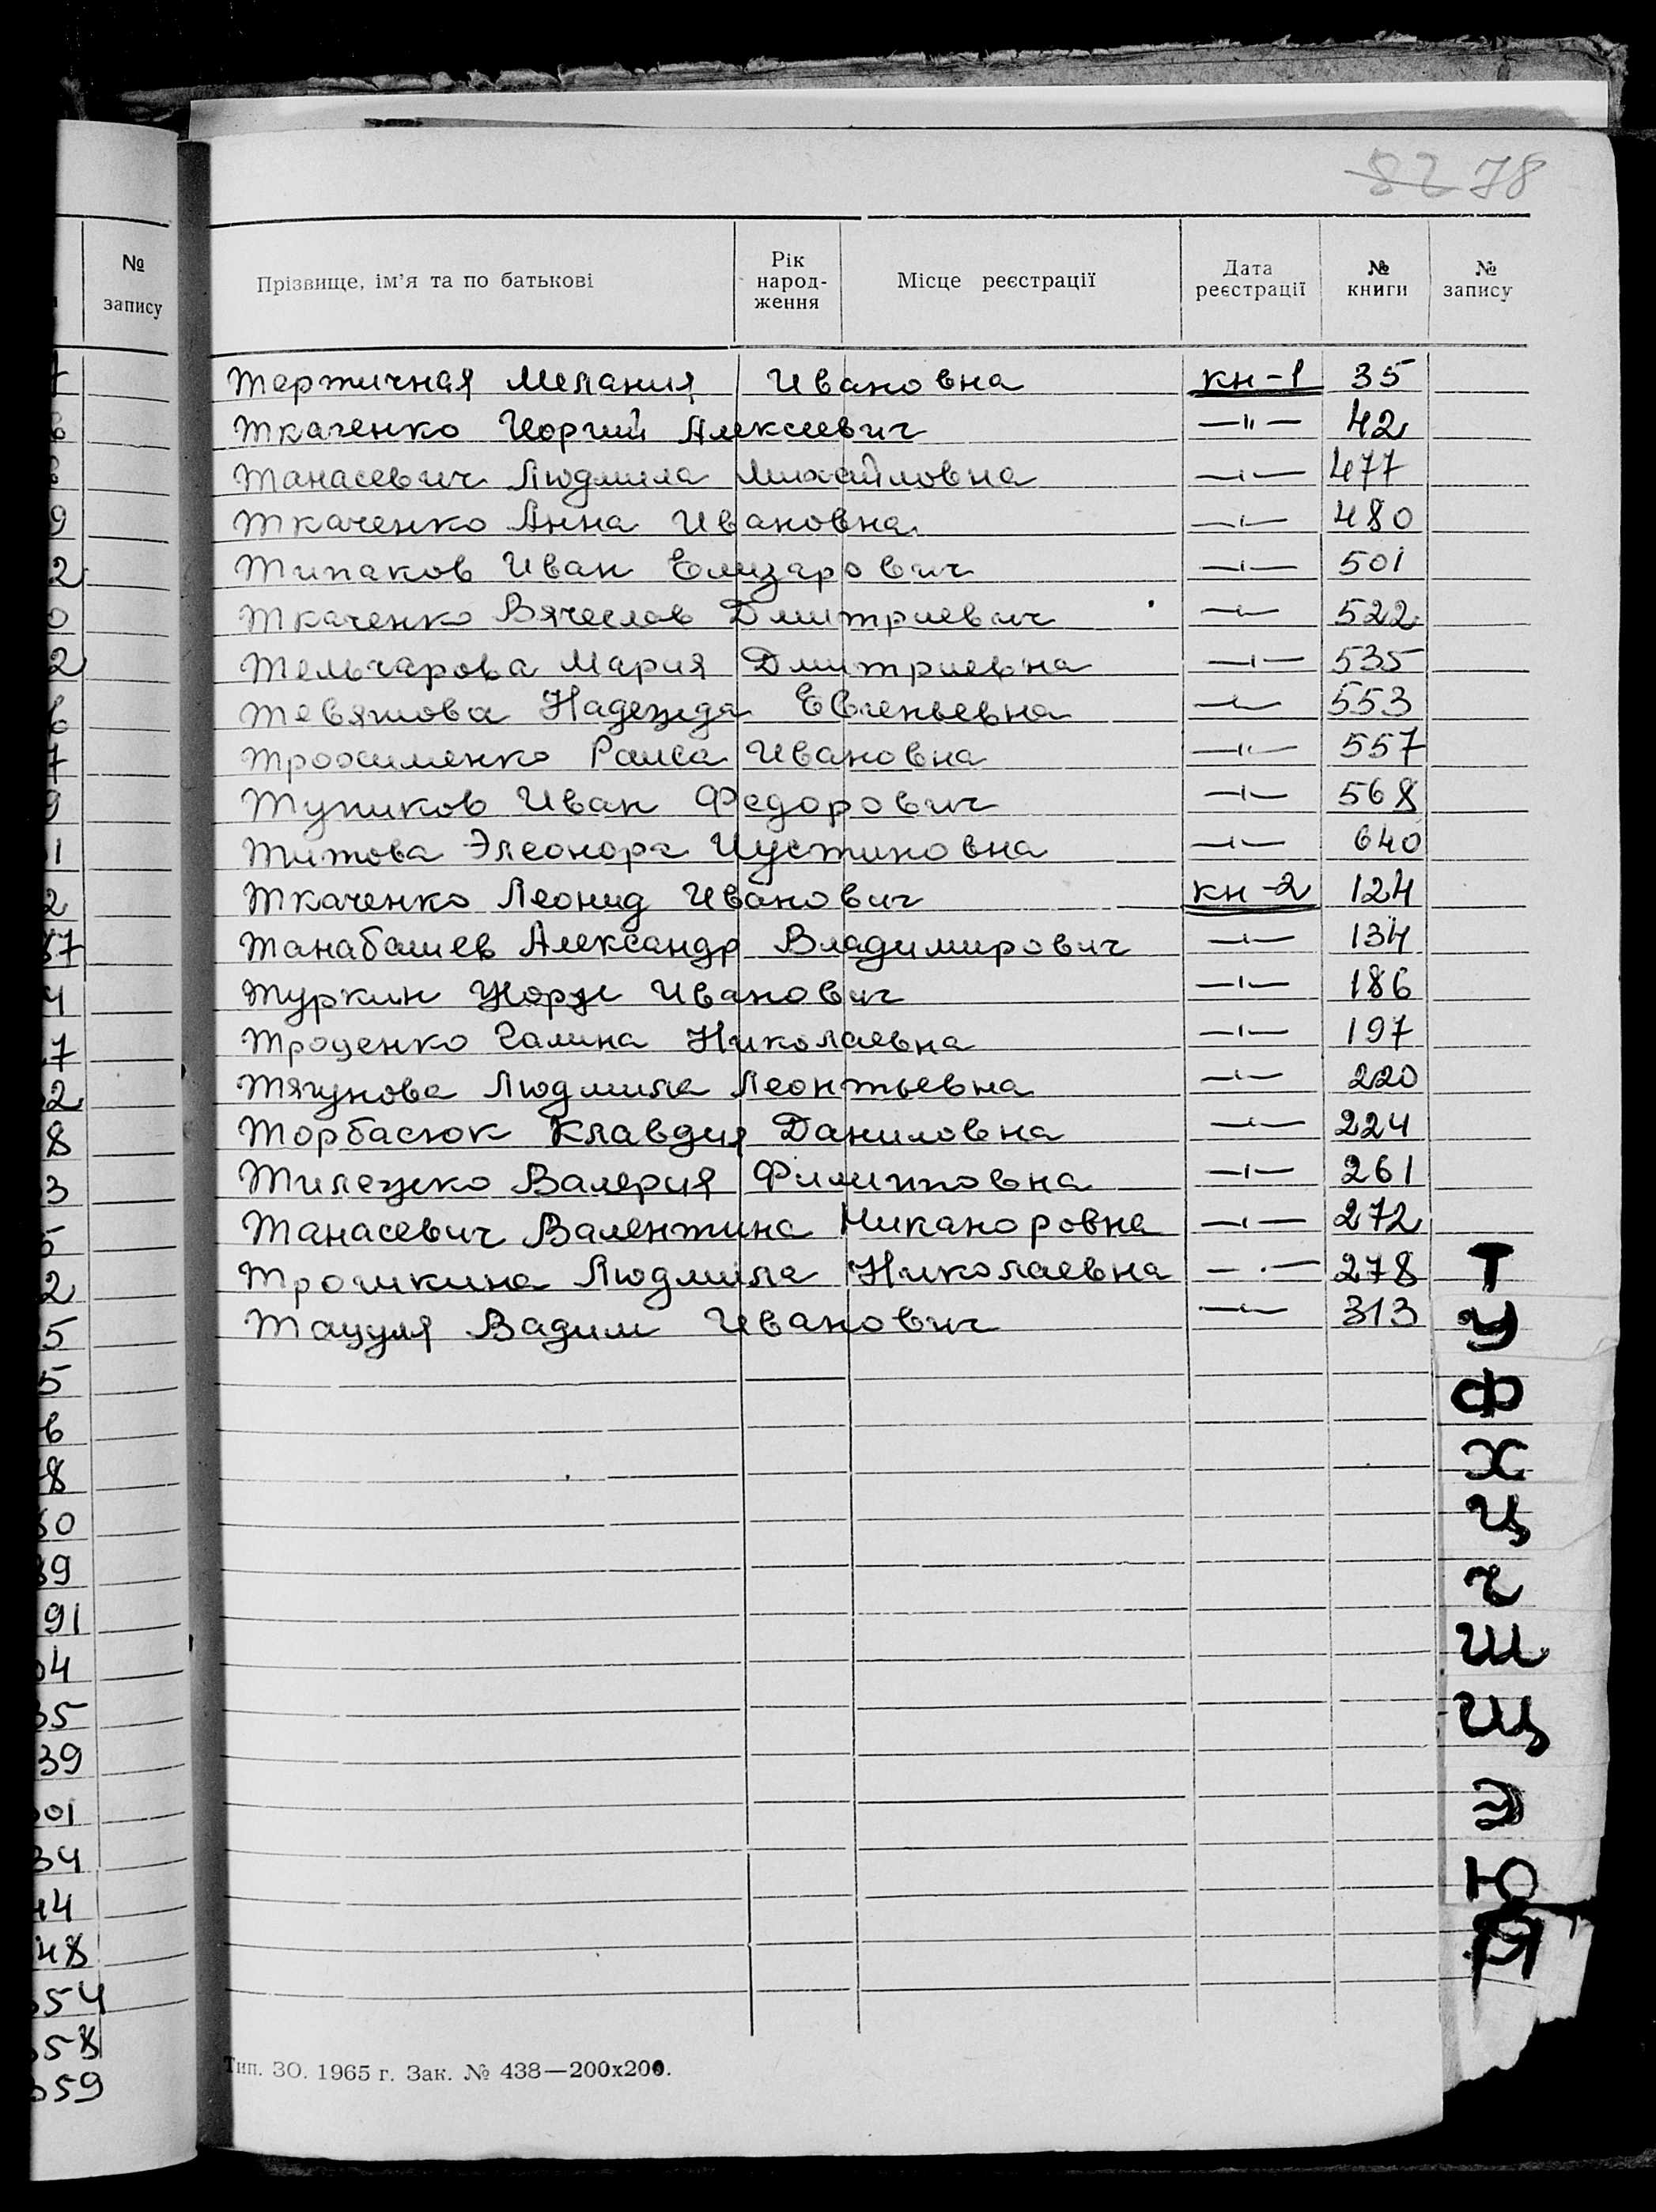 82 78
№ запису
Прізвище, ім'я та по батькові Рік народ- ження Місце реєстрації Дата реєстрації № книги № запису
Тертичная Мелания Ивановна кн-1 35
Ткаченко Георгий Алексеевич —"— 42
Танасевич Людмила Михайловна —"— 477
Ткаченко Анна Ивановна —"— 480
Типаков Иван Елизарович —"— 501
Ткаченко Вячеслав Дмитриевич —"— 522
Тельчарова Мария Дмитриевна —"— 535
Тевяшова Надежда Евгеньевна —"— 553
Трофименко Раиса Ивановна —"— 557
Тупиков Иван Федорович —"— 568
Титова Элеонора Иустиновна —"— 640
Ткаченко Леонид Иванович кн-2 124
Танабашев Александр Владимирович —"— 134
Туркин Жорж Иванович —"— 186
Троценко Галина Николаевна —"— 197
Тягунова Людмила Леонтьевна —"— 220
Торбасюк Клавдия Даниловна —"— 224
Тилежко Валерия Филипповна —"— 261
Танасевич Валентина Никаноровна —"— 272
Трошкина Людмила Николаевна —"— 278
Тацуля Вадим Иванович —"— 313
Т
У
Ф
Х
Ц
Ч
Ш
Щ
Э
Ю
Я
Тип. ЗО. 1965 г. Зак. № 438—200х200.